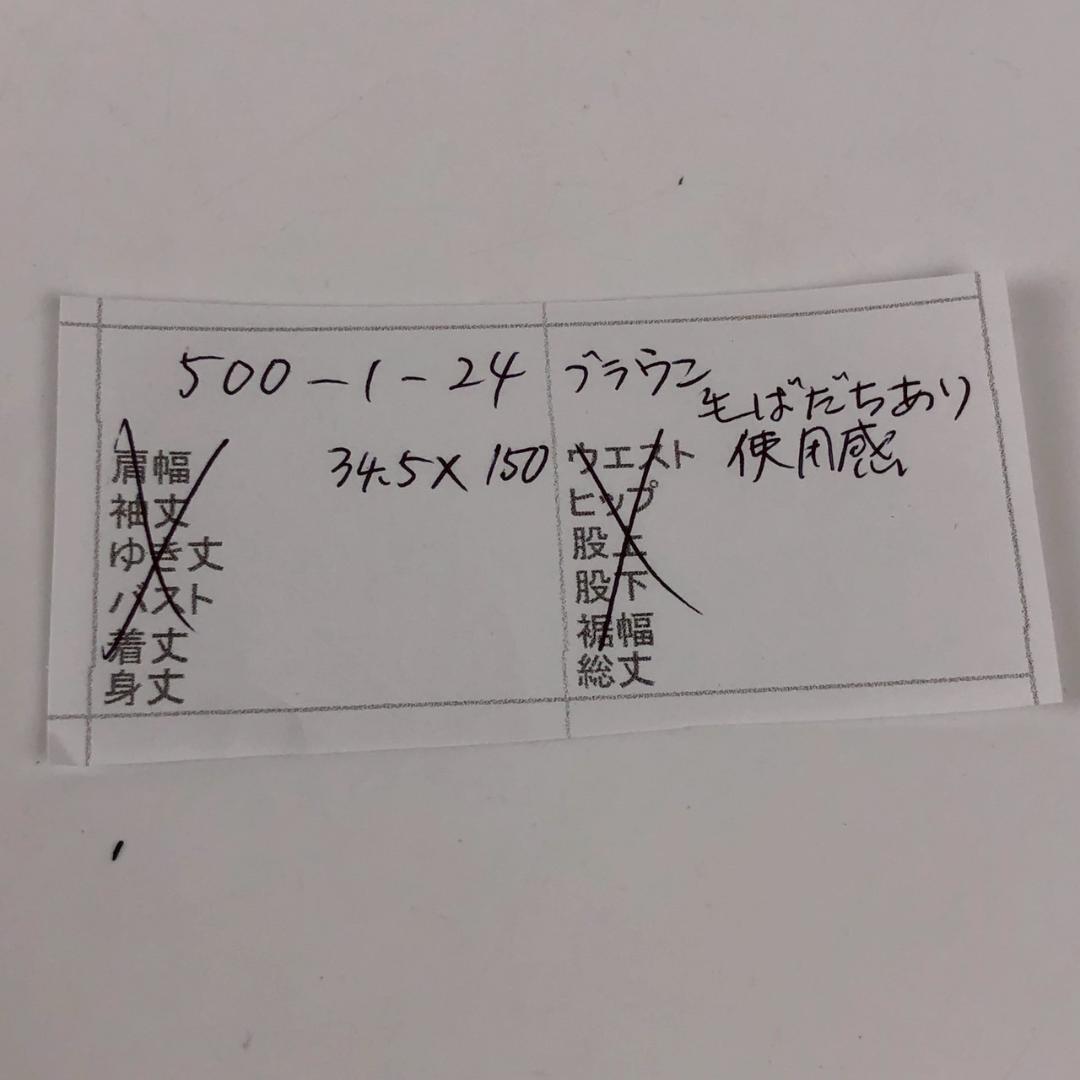 500-1-24 ブラウン
毛ばだちあり
使用感
34.5×150
肩幅
袖丈
ゆき丈
バスト
着丈
身丈
ウエスト
ヒップ
股上
股下
裾幅
総丈